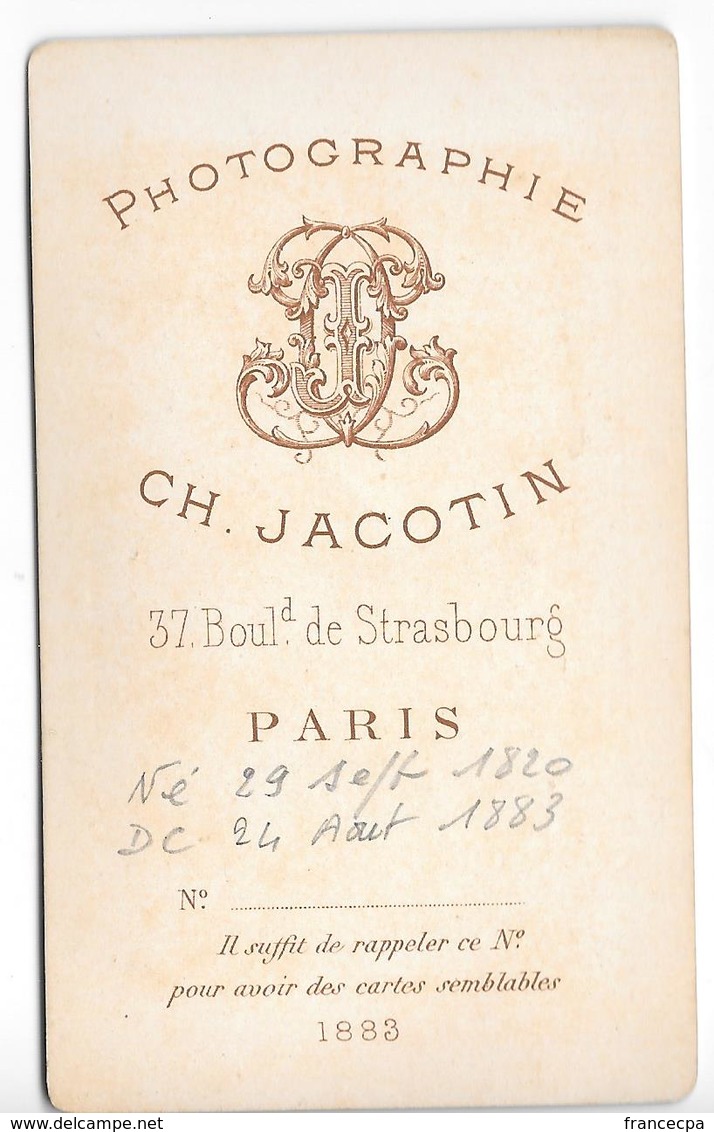 PHOTOGRAPHIE
CH. JACOTIN
37, Boul.d de Strasbourg
PARIS
Né 29 Sept 1820
DC 24 Aout 1883
No.
Il suffit de rappeler ce No.
pour avoir des cartes semblables
1883
www.delcampe.net
francecpa